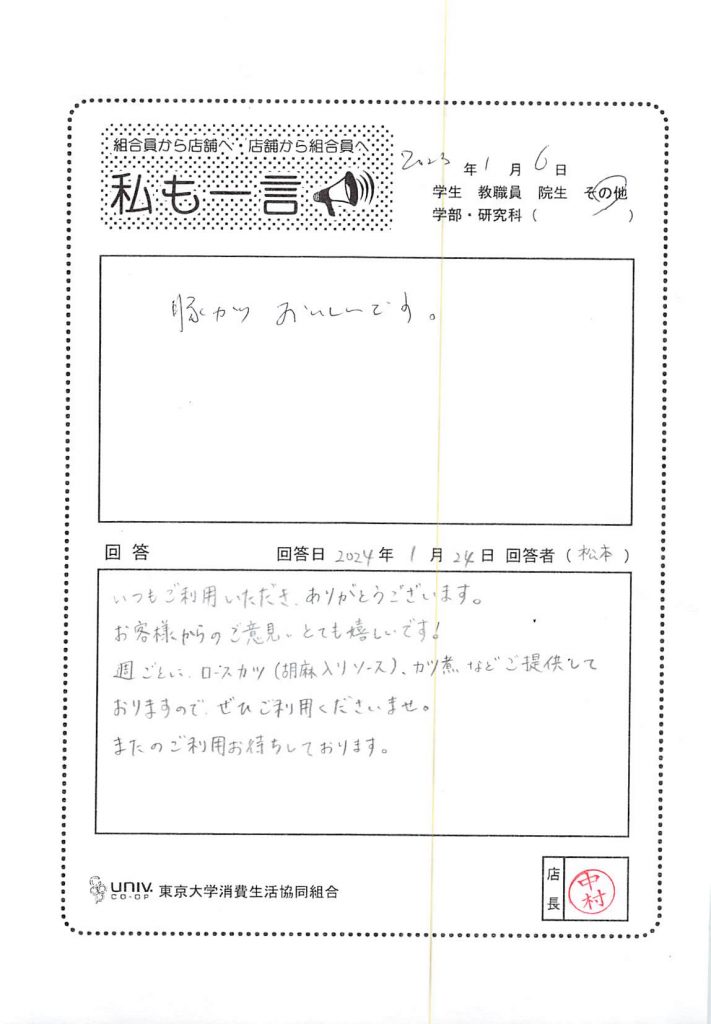 組合員から店舗へ・店舗から組合員へ
私も一言
2023年1月6日
学生 教職員 院生 その他
学部・研究科( )
豚カツ おいしいです。
回答 回答日 2024年1月24日 回答者(松本)
いつもご利用いただき、ありがとうございます。
お客様からのご意見、とても嬉しいです!
週ごとに、ロースカツ(胡麻入りソース)、カツ煮などご提供して
おりますので、ぜひご利用くださいませ。
またのご利用お待ちしております。
UNIV. CO-OP 東京大学消費生活協同組合
店長 中村